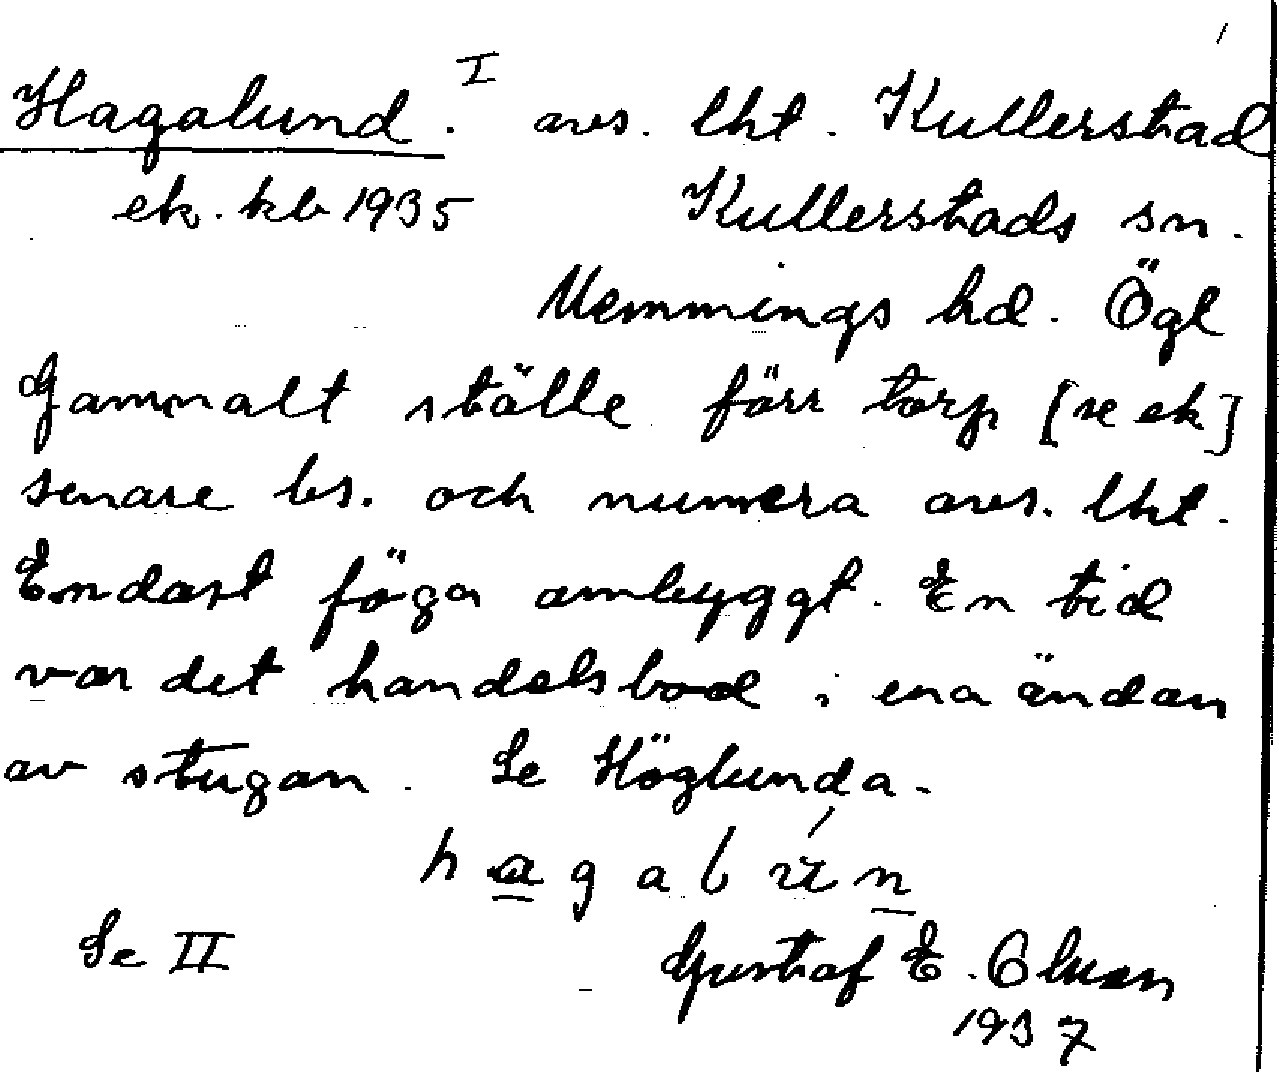 Hagalund. I avs. lht. Kullerstad
ek. kb 1935 Kullerstads sn.
Memmings hd. Ögl
Gammalt ställe förr torp [se ek]
senare bs. och numera avs. lht.
Endast föga ombyggt. En tid
var det handelsbod i ena ändan
av stugan. Se Höglunda.
hagalun
Se II Gustaf E. Olsson
1937